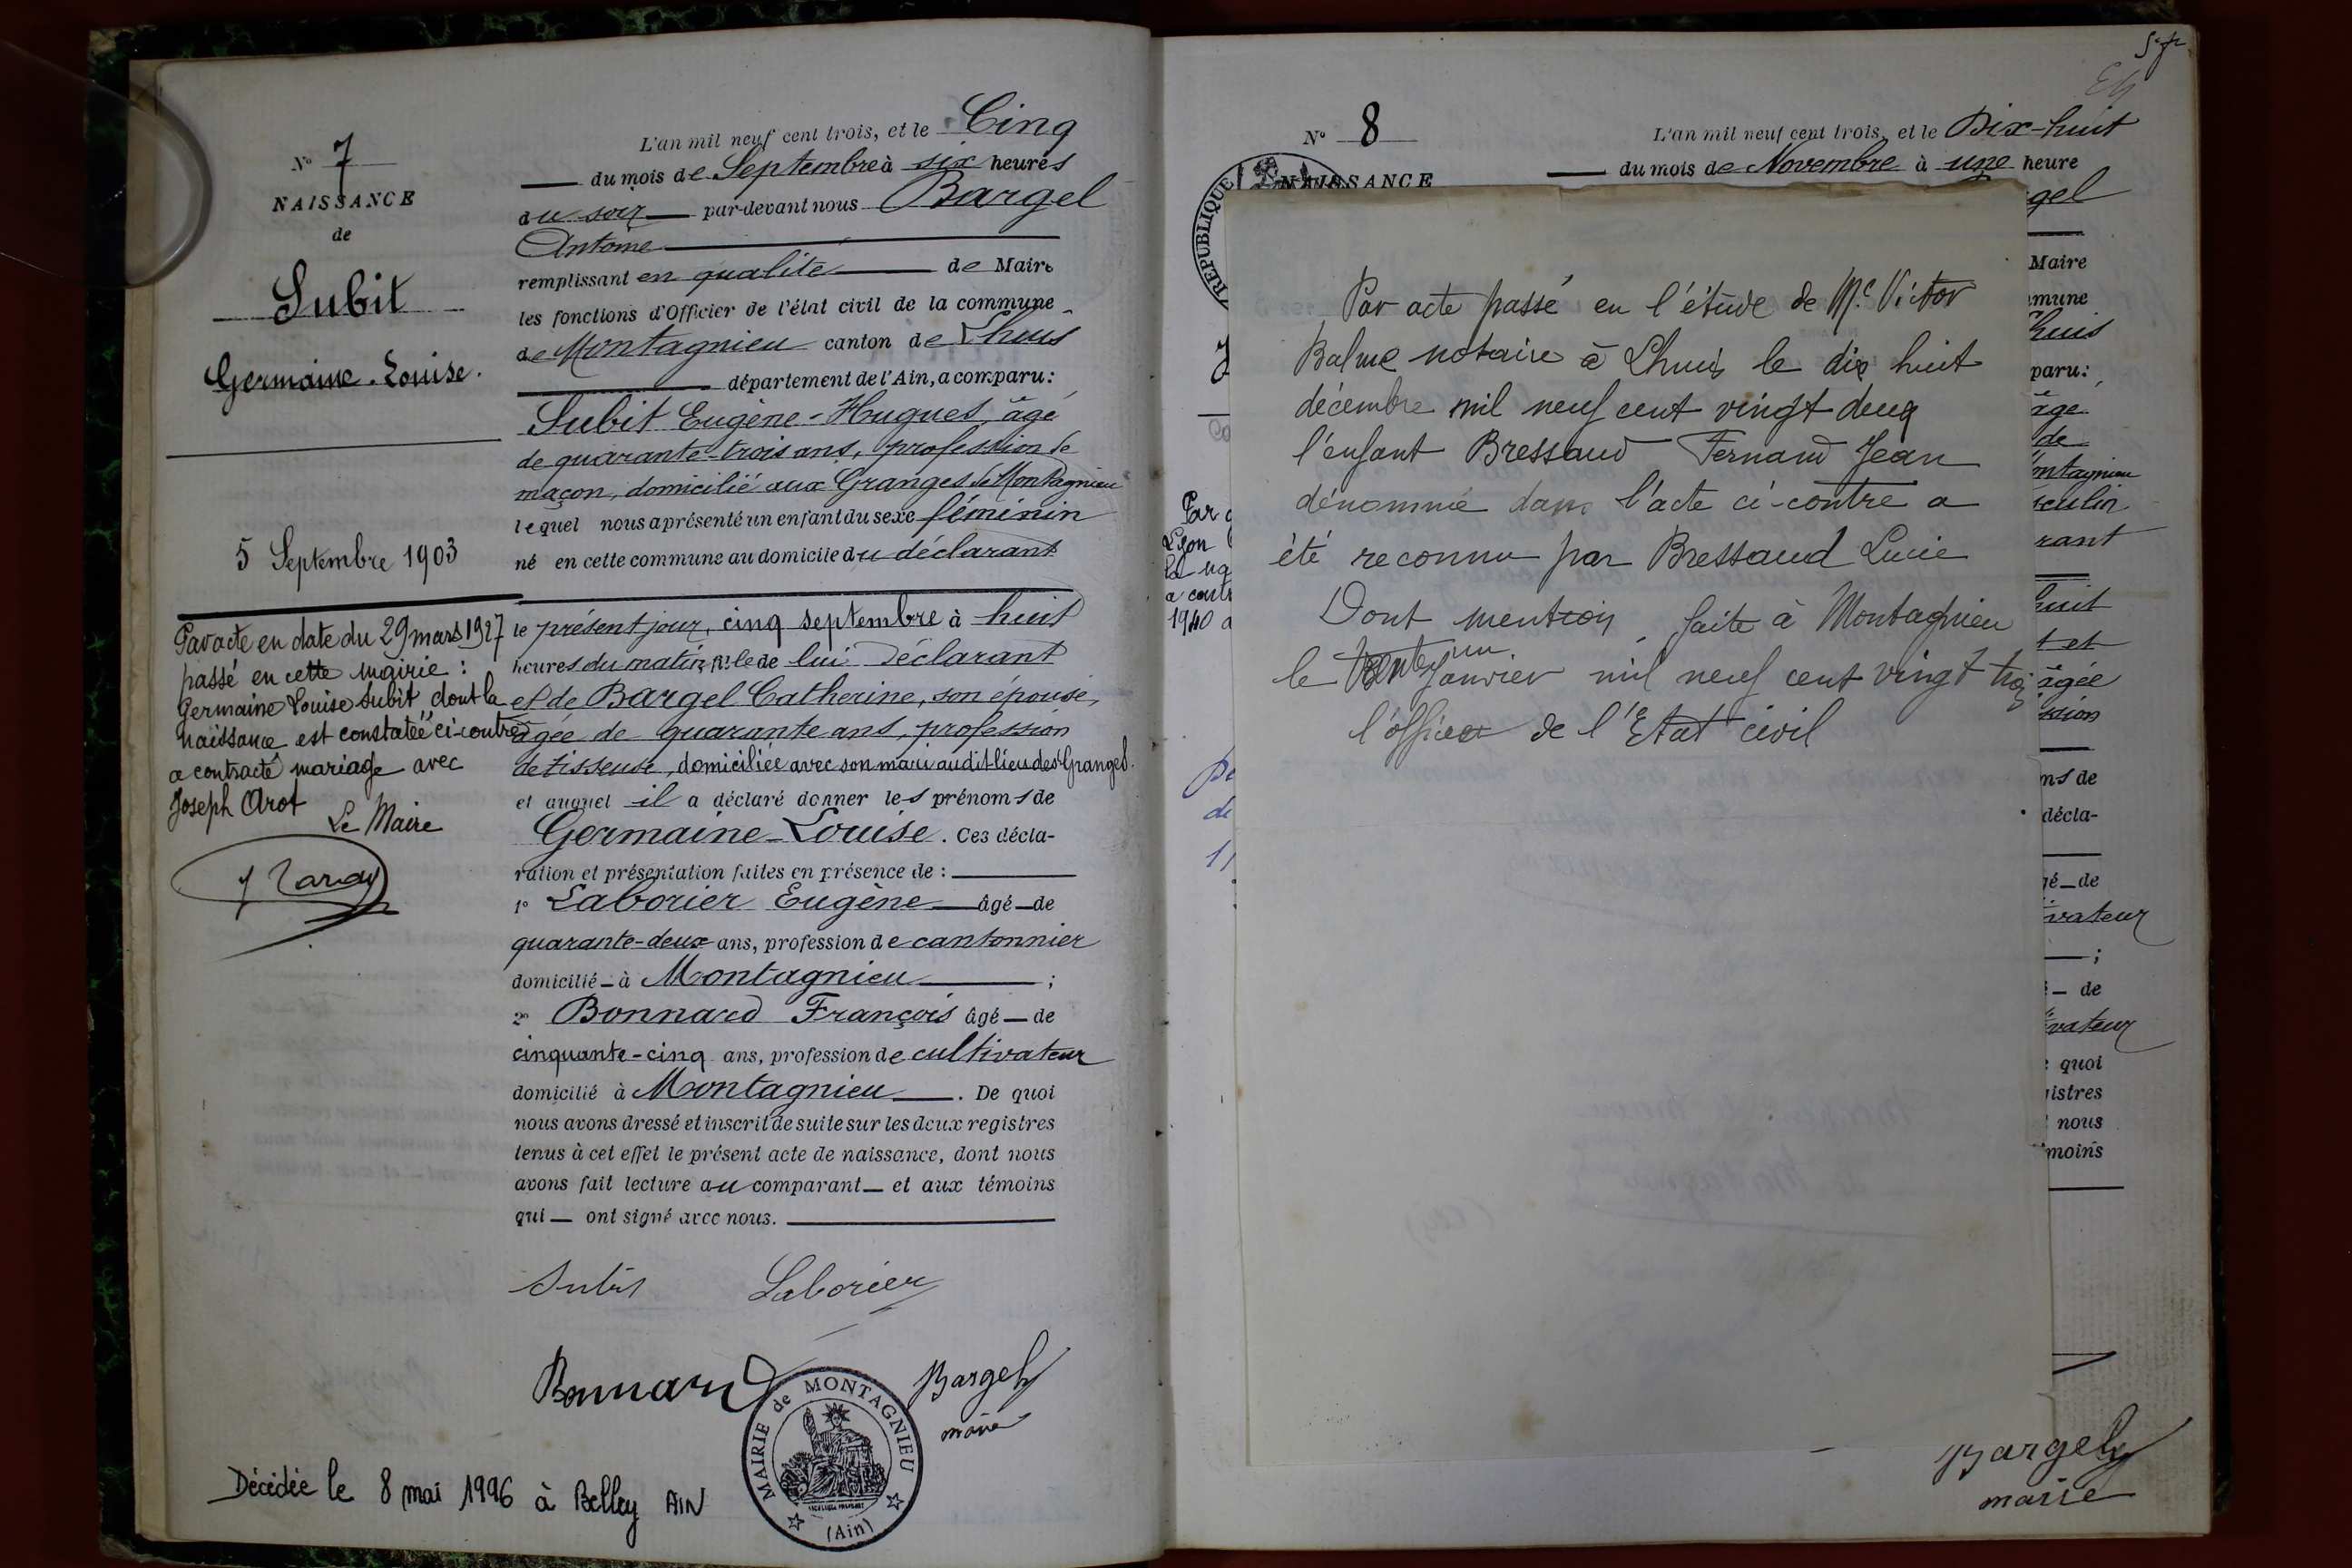 N° 7
NAISSANCE
de
Subit
Germaine-Louise.
5 Septembre 1903
Par acte en date du 29 mars 1927
passé en cette mairie :
Germaine Louise Subit, dont la
naissance est constatée ci-contre
a contracté mariage avec
Joseph Arot
Le Maire
L'an mil neuf cent trois, et le Cinq
du mois de Septembre à six heures
du soir par-devant nous Bargel
Antoine
remplissant en qualité de Maire
les fonctions d'Officier de l'état civil de la commune
de Montagnieu canton de Lhuis
département de l'Ain, a comparu :
Subit Eugène-Hugues, âgé
de quarante-trois ans, profession de
maçon, domicilié aux Granges de Montagnieu
lequel nous a présenté un enfant du sexe féminin
né en cette commune au domicile du déclarant
le présent jour, cinq septembre à huit
heures du matin, fille de lui déclarant
et de Bargel Catherine, son épouse,
âgée de quarante ans, profession
de tisseuse, domiciliée avec son mari audit lieu des Granges.
et auquel il a déclaré donner les prénoms de
Germaine-Louise. Ces décla-
ration et présentation faites en présence de :
1° Laborier Eugène âgé de
quarante-deux ans, profession de cantonnier
domicilié à Montagnieu ;
2° Bonnard François âgé de
cinquante-cinq ans, profession de cultivateur
domicilié à Montagnieu. De quoi
nous avons dressé et inscrit de suite sur les deux registres
tenus à cet effet le présent acte de naissance, dont nous
avons fait lecture au comparant et aux témoins
qui ont signé avec nous.
Subit Laborier
Bonnard Bargel
maire
MAIRIE de MONTAGNIEU
(Ain)
Décédée le 8 mai 1996 à Belley AIN
N° 8
NAISSANCE
REPUBLIQUE
L'an mil neuf cent trois, et le Dix-huit
du mois de Novembre à une heure
gel
Maire
mune
huis
paru :
âgé
de
ontagnieu
sculin
rant
huit
t et
âgée
ssion
ns de
décla-
gé de
ivateur
;
de
vateur
quoi
istres
nous
moins
Par
Lyon
la
a cont
1940
de
Par acte passé en l'étude de Me Victor
Balme notaire à Lhuis le dix huit
décembre mil neuf cent vingt deux
l'enfant Bressaud Fernand Jean
dénommé dans l'acte ci-contre a
été reconnu par Bressaud Lucie
Dont mention faite à Montagnieu
le trente un Janvier mil neuf cent vingt trois
l'officier de l'Etat civil
Bargel
maire